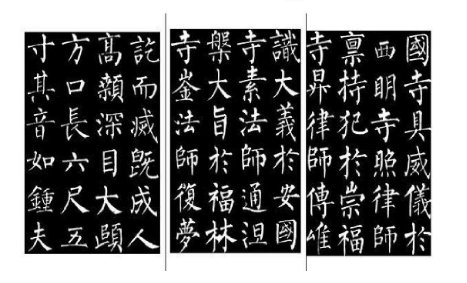 國寺具威儀於
西明寺照律師
禀持犯於崇福
寺昇律師傳唯
識大義於安國
寺素法師通涅
槃大旨於福林
寺崟法師復夢
訖而滅既成人
髙顙深目大頤
方口長六尺五
寸其音如鍾夫